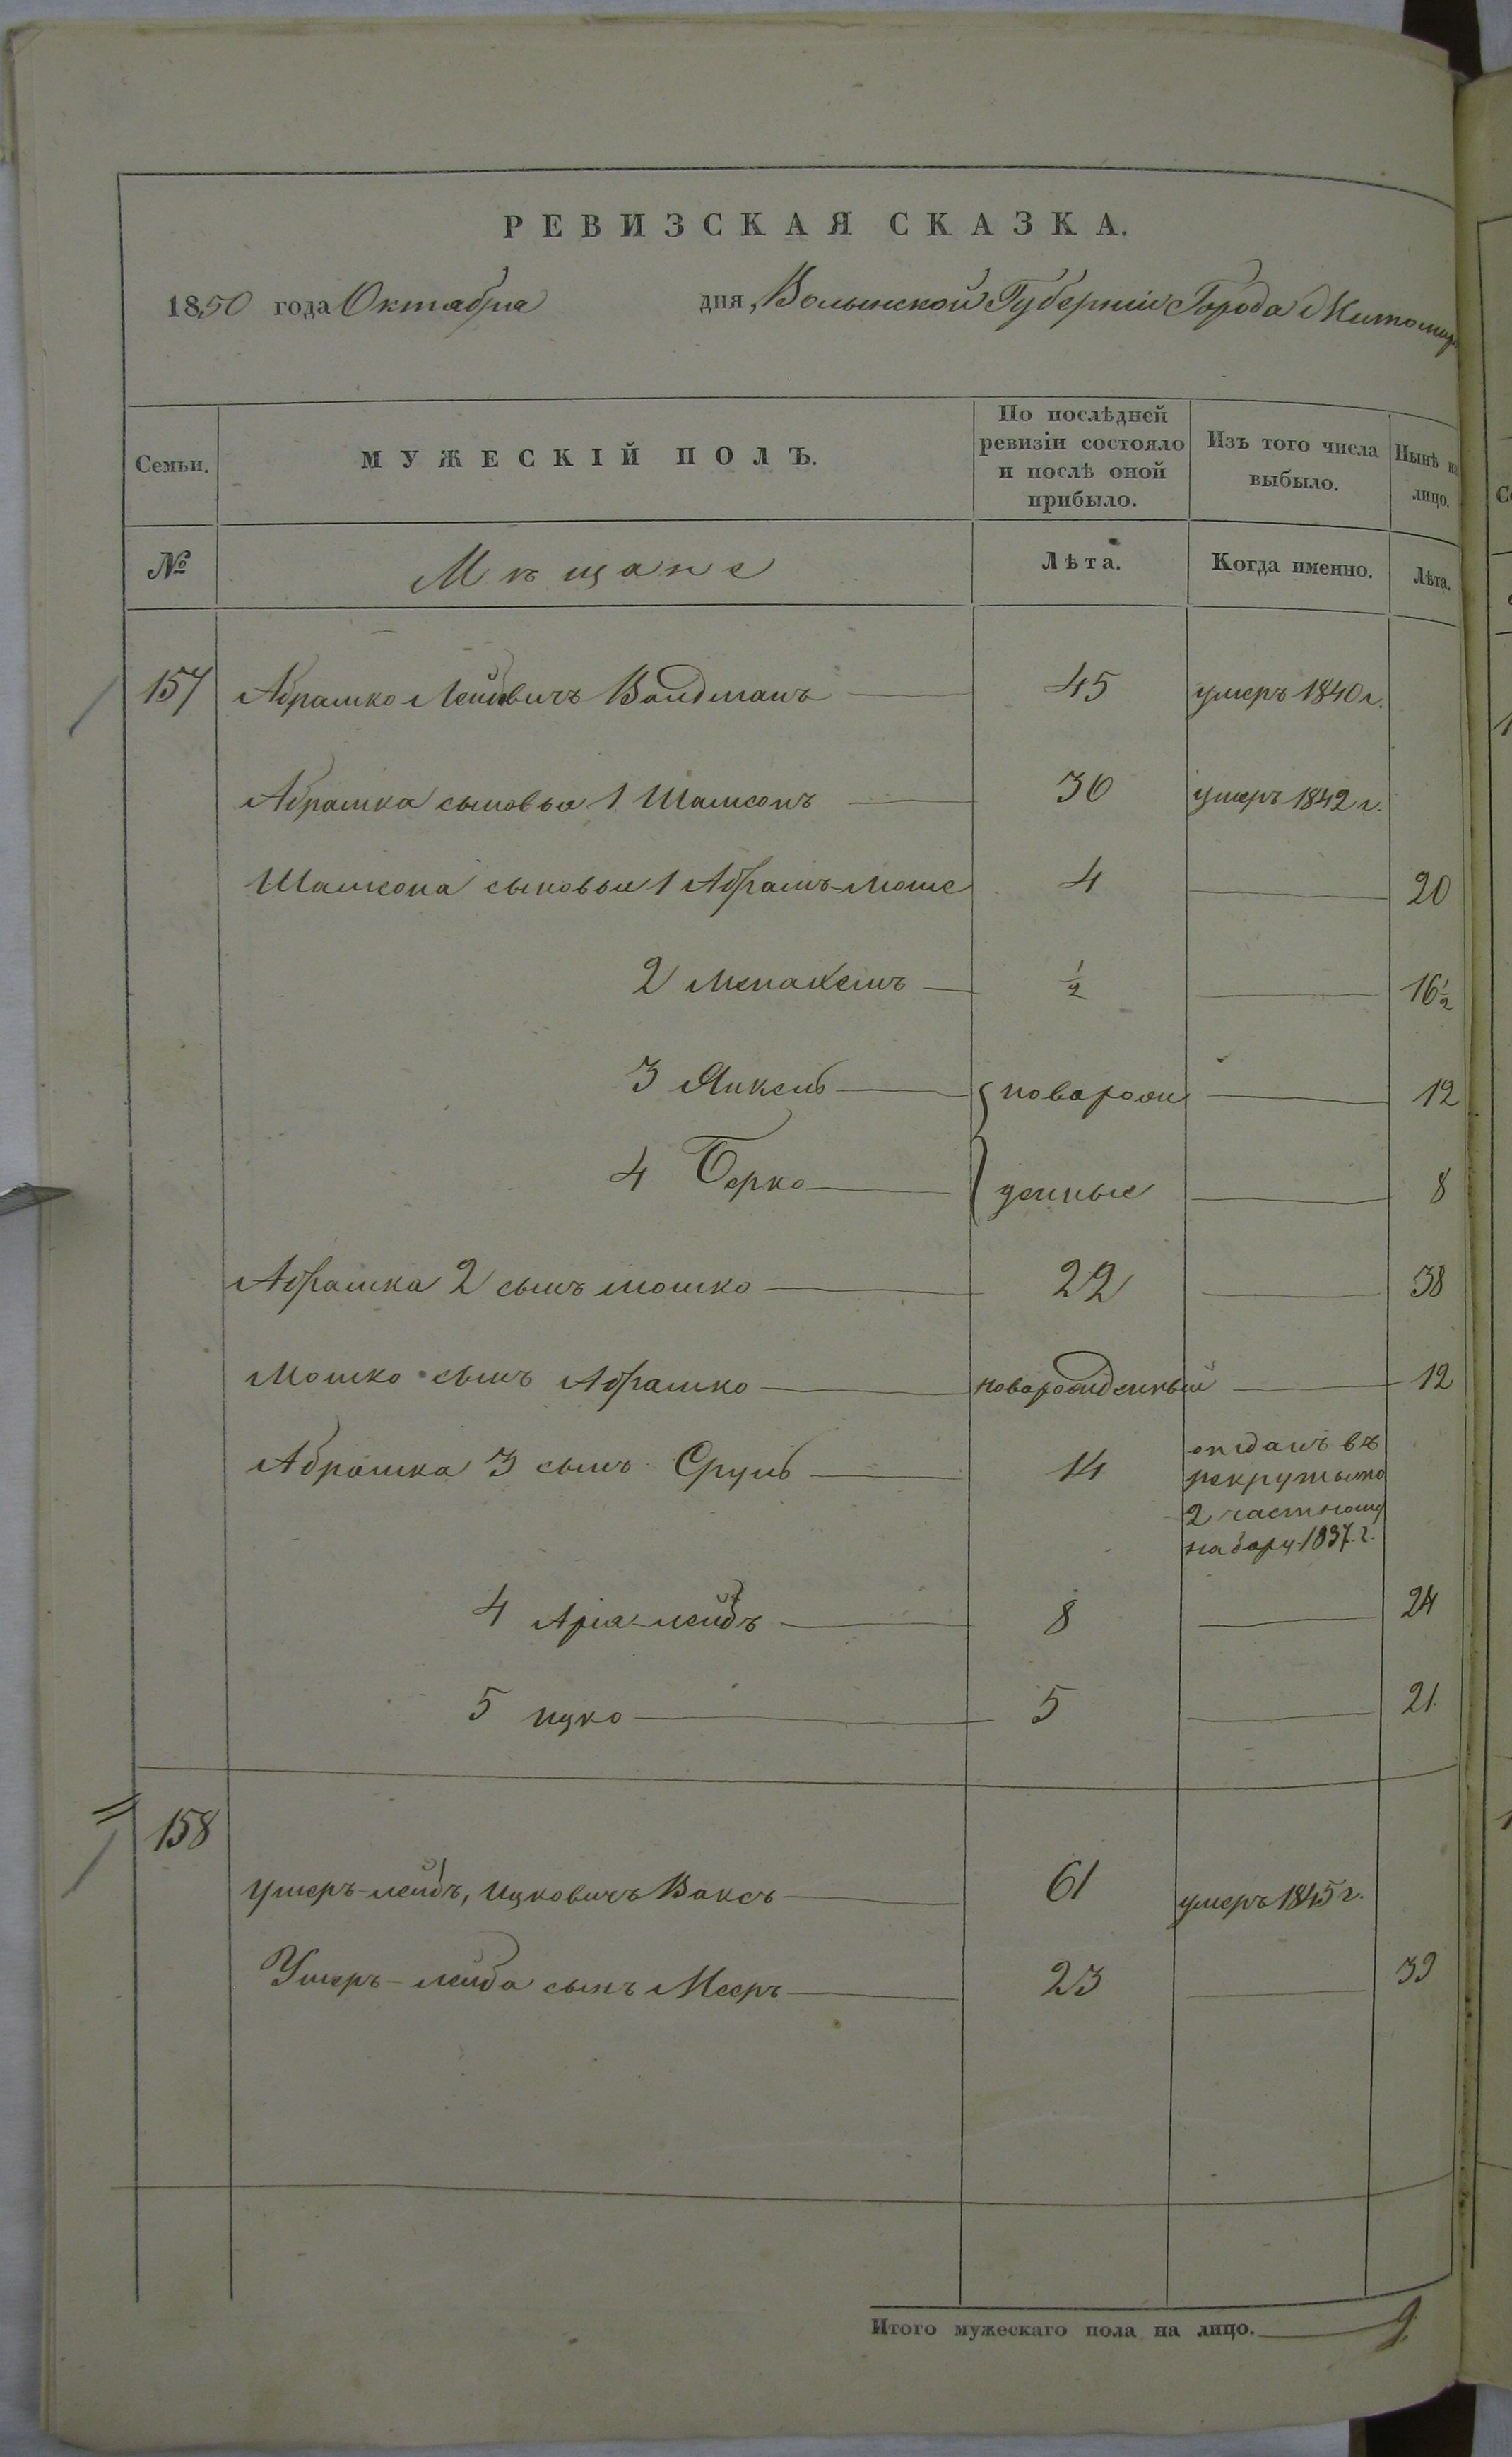 РЕВИЗСКАЯ СКАЗКА.
1850 года Октабра дня, Волынской Губерніи Города Житомир
Семьи. МУЖЕСКІЙ ПОЛЪ. По послѣдней ревизіи состояло и послѣ оной прибыло. Изъ того числа выбыло. Нынѣ на лицо.
№ Мѣщане Лѣта. Когда именно. Лѣта.
157 Абрамко Лейбовичъ Вандманъ 45 умеръ 1840 г.
Абрамка сыновья 1 Шамсонъ 30 умеръ 1842 г.
Шамсона сыновья 1 Абрамъ-Моше 4 20
2 Менахемъ ½ 16½
3 Янкель новарож 12
4 Берко денные 8
Абрамка 2 сынъ Мошко 22 38
Мошко сынъ Абрамко новарожденный 12
Абрамка 3 сынъ Сруль 14 отданъ въ
рекруты по
2 частному
набору 1837. г.
4 Аріа-лейбъ 8 24
5 ицко 5 21
158
Ушеръ-лейбъ, ицковичъ Ваксъ 61 умеръ 1845 г.
Ушеръ-лейба сынъ Мееръ 23 39
Итого мужескаго пола на лицо. 9.